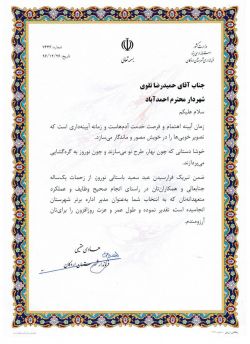 جناب آقای حمیدرضا تقوی
شهردار محترم احمدآباد
سلام علیکم
زمان آیینه اهتمام و فرصت خدمت آدم‌هاست و زمانه آیینه‌داری است که
تصویر خوبی‌ها را در خویش مصور و ماندگار می‌سازد.
خوشا دستانی که چون بهار، طرح نو می‌سازند و چون نوروز به گره‌گشایی
می‌پردازند.
ضمن تبریک فرارسیدن عید سعید باستانی نوروز، از زحمات یکساله
جنابعالی و همکارانتان در راستای انجام صحیح وظایف و عملکرد
متعهدانه‌تان که به انتخاب شما به‌عنوان مدیر اداره برتر شهرستان
انجامیده است؛ تقدیر نموده و طول عمر و عزت روزافزون را برای‌تان
آرزومندم.